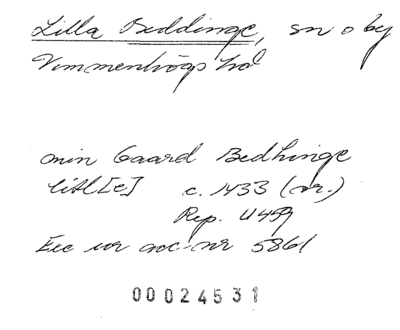 Lilla Beddinge, sn o by
Vemmenhögs hd
min Gaard Bedhinge
litl[e] c. 1433 (or.)
Rep. U 459
Exc ur acc.nr 5861
00024531